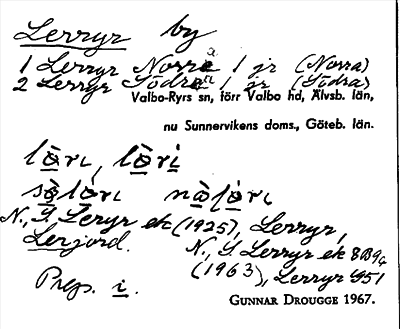 Lerryr by
1 Lerryr Norra 1 jr (Norra)
2 Lerryr Södra 1 jr (Södra)
Valbo-Ryrs sn, förr Valbo hd, Älvsb. län,
nu Sunnervikens doms., Göteb. län.
N., S. Leryr ek (1925), Lerryr,
Lerjord. N., S. Lerryr ek 8B9c
(1963), Lerryr GS1
Prep. i.
GUNNAR DROUGGE 1967.